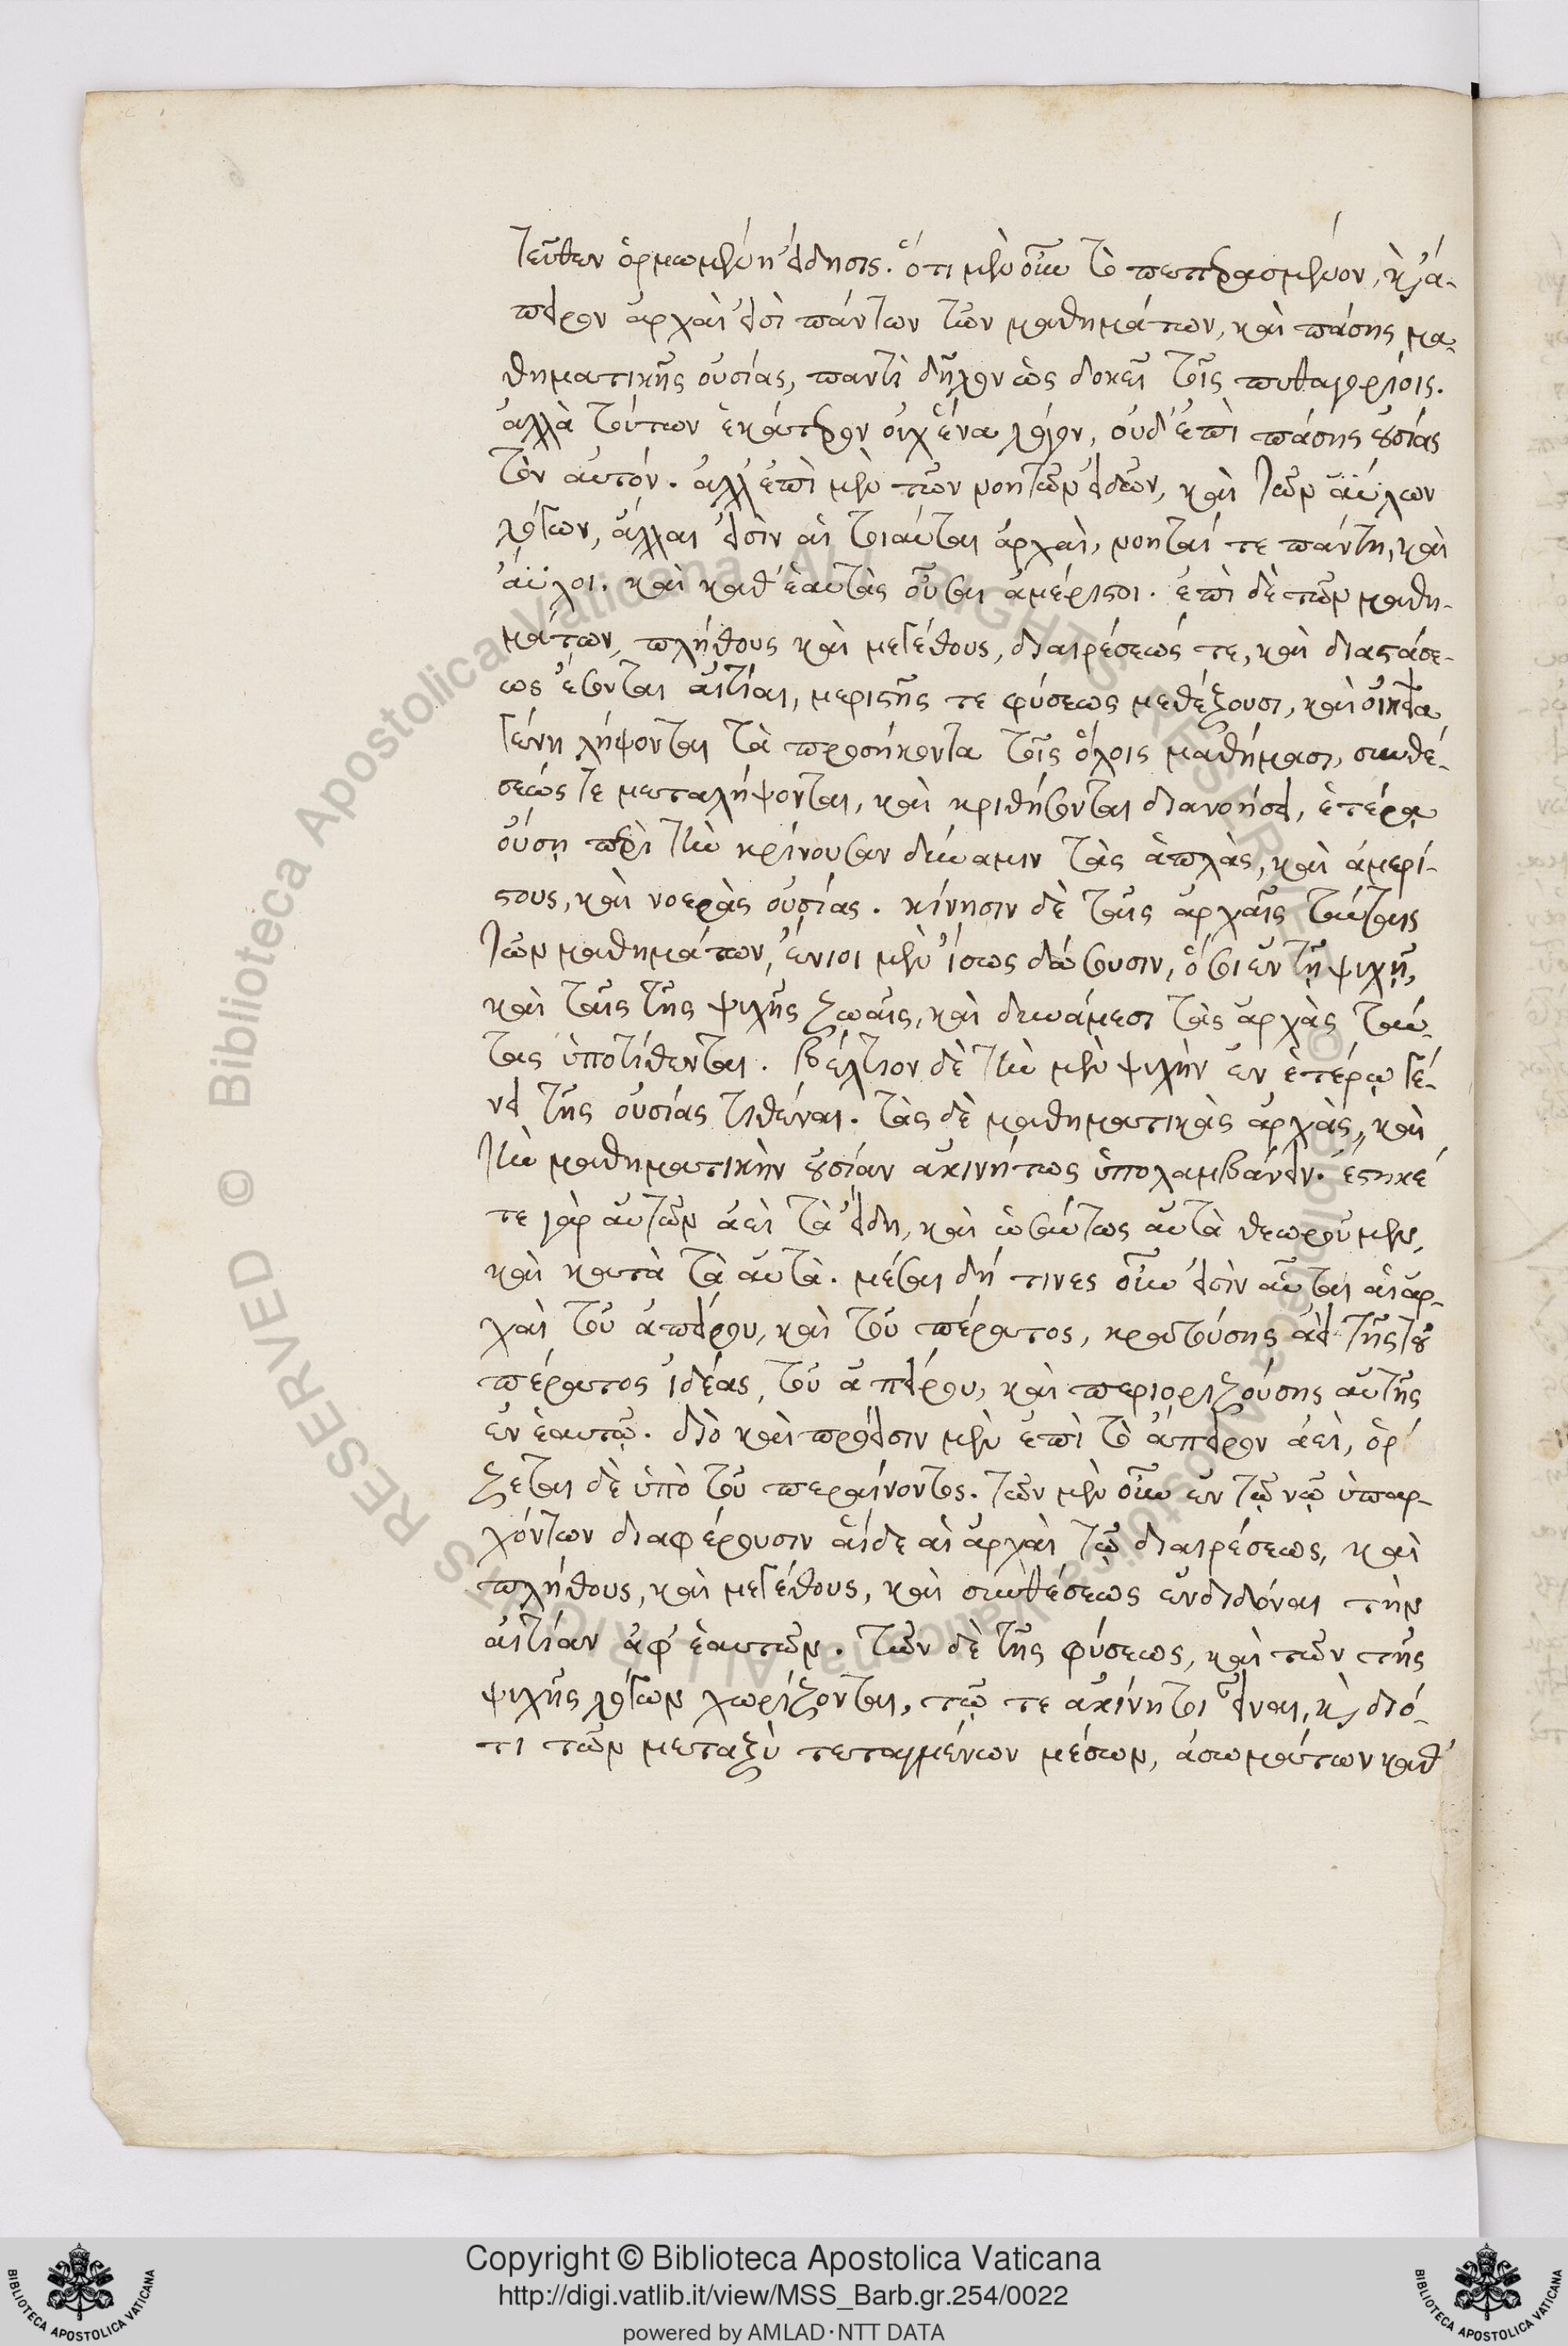 τεῦθεν ὁρμωμένη εἴδησις. ὅτι μὲν οὖν τὸ πεπερασμένον, κ̀ ἄ-
πειρον ἀρχαὶ εἰσὶ πάντων τῶν μαθημάτων, καὶ πάσης μα-
θηματικῆς οὐσίας, παντὶ δῆλον ὡς δοκεῖ τοῖς πυθαγορείοις.
ἀλλὰ τούτων ἑκάτερον οὐχ ἕνα λόγον, οὐδ' ἐπὶ πάσης οὐσίας
τὸν αὐτόν. ἀλλ' ἐπὶ μὲν τῶν νοητῶν εἰδῶν, καὶ τῶν ἀΰλων
λόγων, ἄλλαι εἰσὶν αἱ τοιαῦται ἀρχαὶ, νοηταί τε πάντη, καὶ
ἄϋλοι. καὶ καθ' ἑαυτὰς οὖσαι ἀμέριστοι. ἐπὶ δὲ τῶν μαθη-
μάτων, πλήθους καὶ μεγέθους, διαιρέσεώς τε, καὶ διαστάσε-
ως ἔσονται αἰτίαι, μεριστῆς τε φύσεως μεθέξουσι, καὶ οἰκεῖα
γένη λήψονται τὰ προσήκοντα τοῖς ὅλοις μαθήμασι, συνθέ-
σεώς τε μεταλήψονται, καὶ κριθήσονται διανοήσει, ἑτέρᾳ
οὔσῃ περὶ τὴν κρίνουσαν δύναμιν τὰς ἁπλὰς, καὶ ἀμερί-
στους, καὶ νοερὰς οὐσίας. κίνησιν δὲ ταῖς ἀρχαῖς ταύταις
τῶν μαθημάτων, ἔνιοι μὲν ἴσως δώσουσιν, ὅσοι ἐν τῇ ψυχῇ,
καὶ ταῖς τῆς ψυχῆς ζωαῖς, καὶ δυνάμεσι τὰς ἀρχὰς ταύ-
τας ὑποτίθενται. βέλτιον δὲ τὴν μὲν ψυχὴν ἐν ἑτέρῳ γέ-
νει τῆς οὐσίας τιθέναι. τὰς δὲ μαθηματικὰς ἀρχὰς, καὶ
τὴν μαθηματικὴν οὐσίαν ἀκινήτως ὑπολαμβάνειν. ἕστηκέ
τε γὰρ αὐτῶν ἀεὶ τὰ εἴδη, καὶ ὡσαύτως αὐτὰ θεωροῦμεν,
καὶ κατὰ τὰ αὐτὰ. μέσαι δή τινες οὖν εἰσὶν αὗται αἱ ἀρ-
χαὶ τοῦ ἀπείρου, καὶ τοῦ πέρατος, κρατούσης ἀεὶ τῆς τοῦ
πέρατος ἰδέας, τοῦ ἀπείρου, καὶ περιοριζούσης αὐτῆς
ἐν ἑαυτῷ. διὸ καὶ πρόεισιν μὲν ἐπὶ τὸ ἄπειρον ἀεὶ, ὁρί
ζεται δὲ ὑπὸ τοῦ περαίνοντος. τῶν μὲν οὖν ἐν τῷ νῷ ὑπαρ-
χόντων διαφέρουσιν αἵδε αἱ ἀρχαὶ τῷ διαιρέσεως, καὶ
πλήθους, καὶ μεγέθους, καὶ συνθέσεως ἐνδιδόναι τὴν
αἰτίαν ἀφ' ἑαυτῶν. τῶν δὲ τῆς φύσεως, καὶ τῶν τῆς
ψυχῆς λόγων χωρίζονται, τῷ τε ἀκίνητοι εἶναι, κ̀ διό-
τι τῶν μεταξὺ τεταγμένων μέσων, ἀσωμάτων καθ'
Copyright © Biblioteca Apostolica Vaticana
http://digi.vatlib.it/view/MSS_Barb.gr.254/0022
powered by AMLAD·NTT DATA